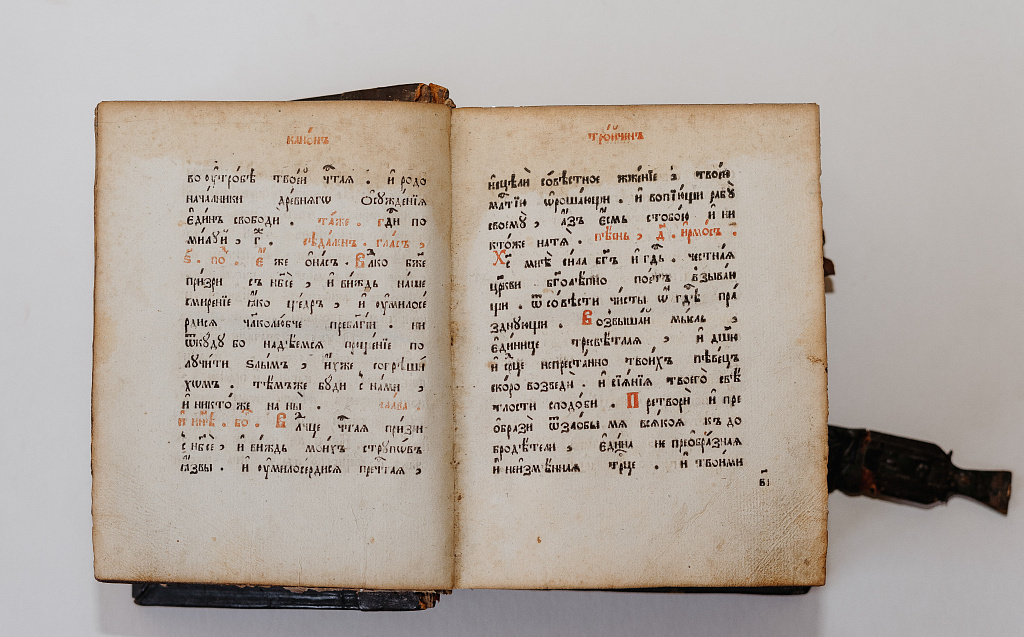 кано́нъ
во ᲂу҆тро́бѣ твое́й чⷭ҇тая . и҆ родо
нача́лники дре́внягѡ ѡ҆сужде́нїя
є҆ди́нъ свободи̂ . та́же . гдⷭ҇и по
ми́луй , г҃ . сѣда́ленъ . гла́съ ,
ѕ҃ . по . є҆же ѻ҆на́съ . влⷣко бж҃е
при́зри съ нб҃се̂ , и҆ ви́ждь на́ше
смире́нїе ꙗ҆́ко ще́дръ , и҆ ᲂу҆милосе́
рдися чл҃колю́бче пребл҃гі́и . ни
ѿкꙋ́дꙋ бо надѣ́емся проще́нїе по
лꙋчи́ти ѕлы́мъ , и҆́хже согрѣши́
хѡмъ . тѣ́мъже бꙋ́ди с на́ми ,
и҆ никто́ же на ны̀ . сла́ва
и҆ ны́нѣ . бо . влⷣчце чⷭ҇тая при́зри
с нб҃се̂ , и҆ ви́ждь мои́хъ стрꙋ́пѡвъ
ꙗ҆́звы . и҆ ᲂу҆милосе́рдися преч́тая ,
тро́иченъ
и҆сцѣлѝ со́вѣстное жже́нїе з твоє́ю
млⷭ҇тїю ѡ҆роша́ющи . и҆ вопїю́щи рабꙋ̀
своемꙋ̀ , а҆́зъ є҆́смь стобо́ю и҆ ни
кто́же натѧ̀ . пѣ́снь , д҃ . ирмо́съ .
Хс҃ мнѣ̀ си́ла бг҃ъ и҆ гдⷭ҇ь . честна́я
цр҃кви бг҃олѣ́пно пое́тъ взыва́ю
щи . ѿ со́вѣсти чи́сты ѡ҆ гдⷭ҇ѣ пра́
зднꙋющи . Возвыша́й мы́сль ,
є҆ди́нице трисвѣ́тлая , и҆ дш҃ꙋ
и҆ срⷣце непреста́нно твои́хъ пѣве́цъ
ско́ро возведѝ . и҆ сїя́нїя твоего̀ свѣ́
тлости сподо́би . Претворѝ и҆ пре
ѡ҆бразѝ ѿзло́бы мя̀ вся́коя къ до
бродѣ́тели , є҆ди́на непреѡбра́зная
и҆ неизмѣ́нная трⷪ҇це . и҆ твои́ми
в҃і